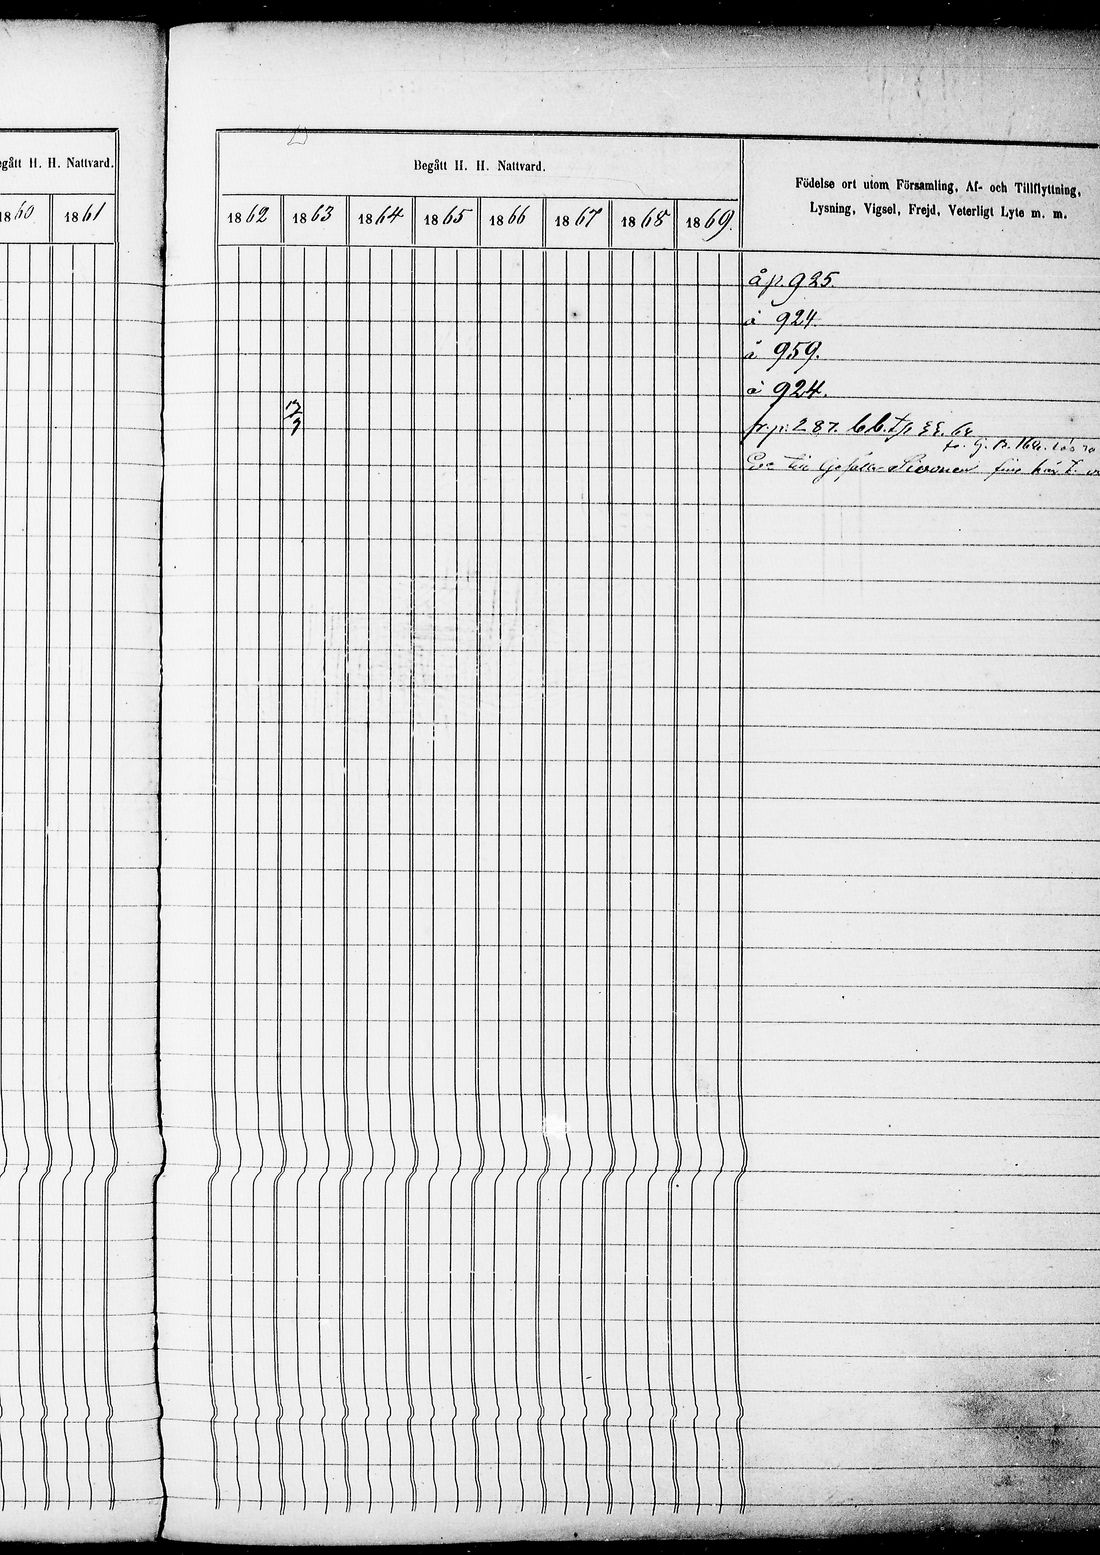 egått H. H. Nattvard.
1860 1861
Begått H. H. Nattvard.
1862 1863 1864 1865 1866 1867 1868 1869.
Födelse ort utom Församling, Af- och Tillflyttning,
Lysning, Vigsel, Frejd, Veterligt Lyte m. m.
å p. 925.
å 924.
å 959.
å 924.
fr. p. 287.
till